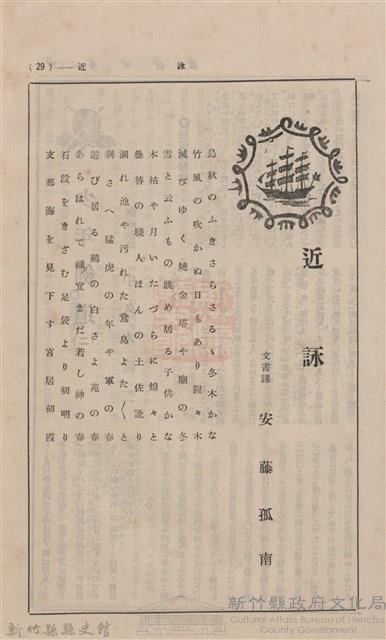 (29)——近　詠
近詠
文書課　安藤孤南
烏秋のふきさらさるゝ冬木かな
竹風の吹かぬ日もあり羅々木
滅びゆく燒金塔や廟の冬
雪と云ふもの眺め居る子供かな
木枯や月いたづらに煌々と
疊替の職人ほんの土佐訛り
涸れ池や汚れた鵞鳥よた〱と
剥さへ猛虎の年や軍の春
遊び居る鶏の白さよ苑の春
あらはれて禰宜まだ若し神の春
石段をきざむ足袋より初明り
支那海を見下す宮居初霞
新竹縣政府文化局
Cultural Affairs Bureau of Hsinchu County Government
新竹縣縣史館